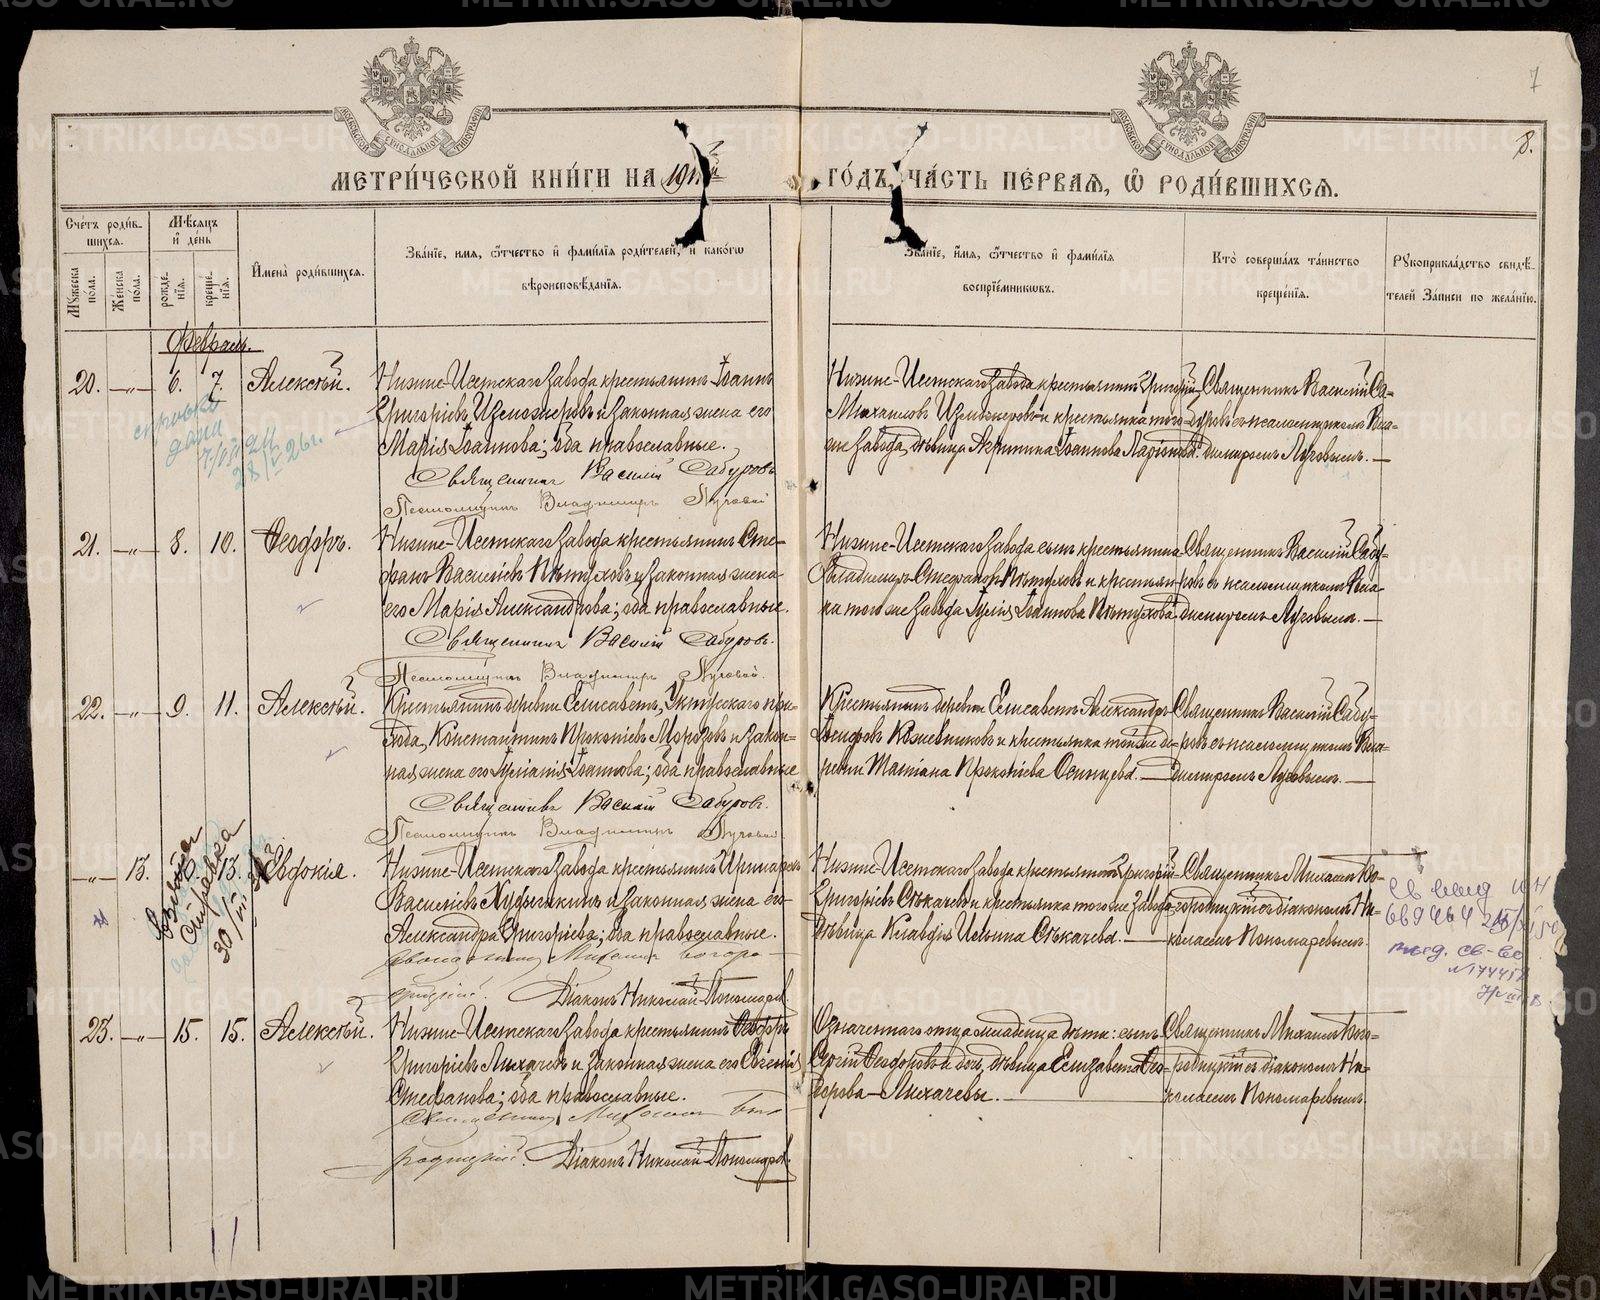 7
8.
МЕТРИ́ЧЕСКОЙ КНИ́ГИ НА 19
ГО́ДЪ, ЧА́СТЬ ПЕ́РВАЯ, Ѽ РОДИ́ВШИХСЯ.
Сче́тъ роди́в-
шихся.
Му́жеска по́ла.
Же́нска по́ла.
Мѣ́сяцъ и де́нь
рожде-нія.
креще-нія.
Имена̀ роди́вшихся.
Зва́ніе, имя, ѻтчество и фами́лія роди́телей, и како́гѡ
вѣроисповѣ́данія.
Зва́ніе, и́мя, ѻтчество и фами́лія
воспріе́мникѡвъ.
Кто̀ соверша́лъ та́инство
креще́нія.
Рꙋкоприкла́дство свидѣ́-
телей за́писи по жела́нію.
Февраль.
20. —„— 6. 7. Алексѣй.
Нижне-Исетскаго завода крестьянинъ Іоаннъ
Григоріевъ Изможеровъ и законная жена его
Марія Іоаннова; оба православные.
Священникъ Василій Сабуровъ
Псаломщикъ Владимиръ Луговой
Нижне-Исетскаго завода крестьянинъ Григорій
Михаиловъ Изможеровъ и крестьянка того-
же завода, дѣвица Акриппина Іоаннова Ларіонова.
Священникъ Василій Са-
буровъ съ псаломщикомъ Вла-
димиромъ Луговымъ. —
21. —„— 8. 10. Ѳеодоръ.
Нижне-Исетскаго завода крестьянинъ Сте-
фанъ Василіевъ Пѣтуховъ и законная жена
его Марія Александрова; оба православные.
Священникъ Василій Сабуровъ.
Псаломщикъ Владимиръ Луговой.
Нижне-Исетскаго завода сынъ крестьянина
Владимиръ Стефановъ Пѣтуховъ и крестьян-
ка того же завода Юлія Іоаннова Пѣтухова.
Священникъ Василій Сабу-
ровъ съ псаломщикомъ Вла-
димиромъ Луговымъ. —
22. —„— 9. 11. Алексѣй.
Крестьянинъ деревни Елисаветъ, Уктусскаго при-
хода, Константинъ Прокопіевъ Морозовъ и закон-
ная жена его Іуліанія Іоаннова; оба православные
Священникъ Василій Сабуровъ.
Псаломщикъ Владимиръ Луговой.
Крестьянинъ деревни Елисаветъ Александръ
Кожевниковъ и крестьянка той же де-
ревни Татіана Прокопіева Осинцева. —
Священникъ Василій Сабу-
ровъ съ псаломщикомъ Вла-
димиромъ Луговымъ. —
—„— 13. 13. Евдокія.
Нижне-Исетскаго завода крестьянинъ
Василіевъ и законная жена его
Александра Григоріева; оба православные.
Священникъ Михаилъ Богоро-
дицкій. Діаконъ Николай Пономаревъ
Нижне-Исетскаго завода крестьянинъ Григорій
Григоріевъ Сѣкачевъ и крестьянка того же завода
дѣвица Клавдія Ильина Сѣкачева. —
Священникъ Михаилъ Бо-
городицкій съ діакономъ Ни-
колаемъ Пономаревымъ.
23. —„— 15. 15. Алексѣй.
Нижне-Исетскаго завода крестьянинъ Ѳеодоръ
Григоріевъ Лихачевъ и законная жена его Евгенія
Стефанова; оба православные.
Священникъ Михаилъ Бого-
родицкій. Діаконъ Николай Пономаревъ.
Означеннаго отца младенца дѣти: сынъ
Сергій Ѳеодоровъ и дочь, дѣвица Елизавета Ѳео-
дорова Лихачевы. —
Священникъ Михаилъ Бого-
родицкій съ діакономъ Ни-
колаемъ Пономаревымъ.
справка
METRIKI.GASO-URAL.RU